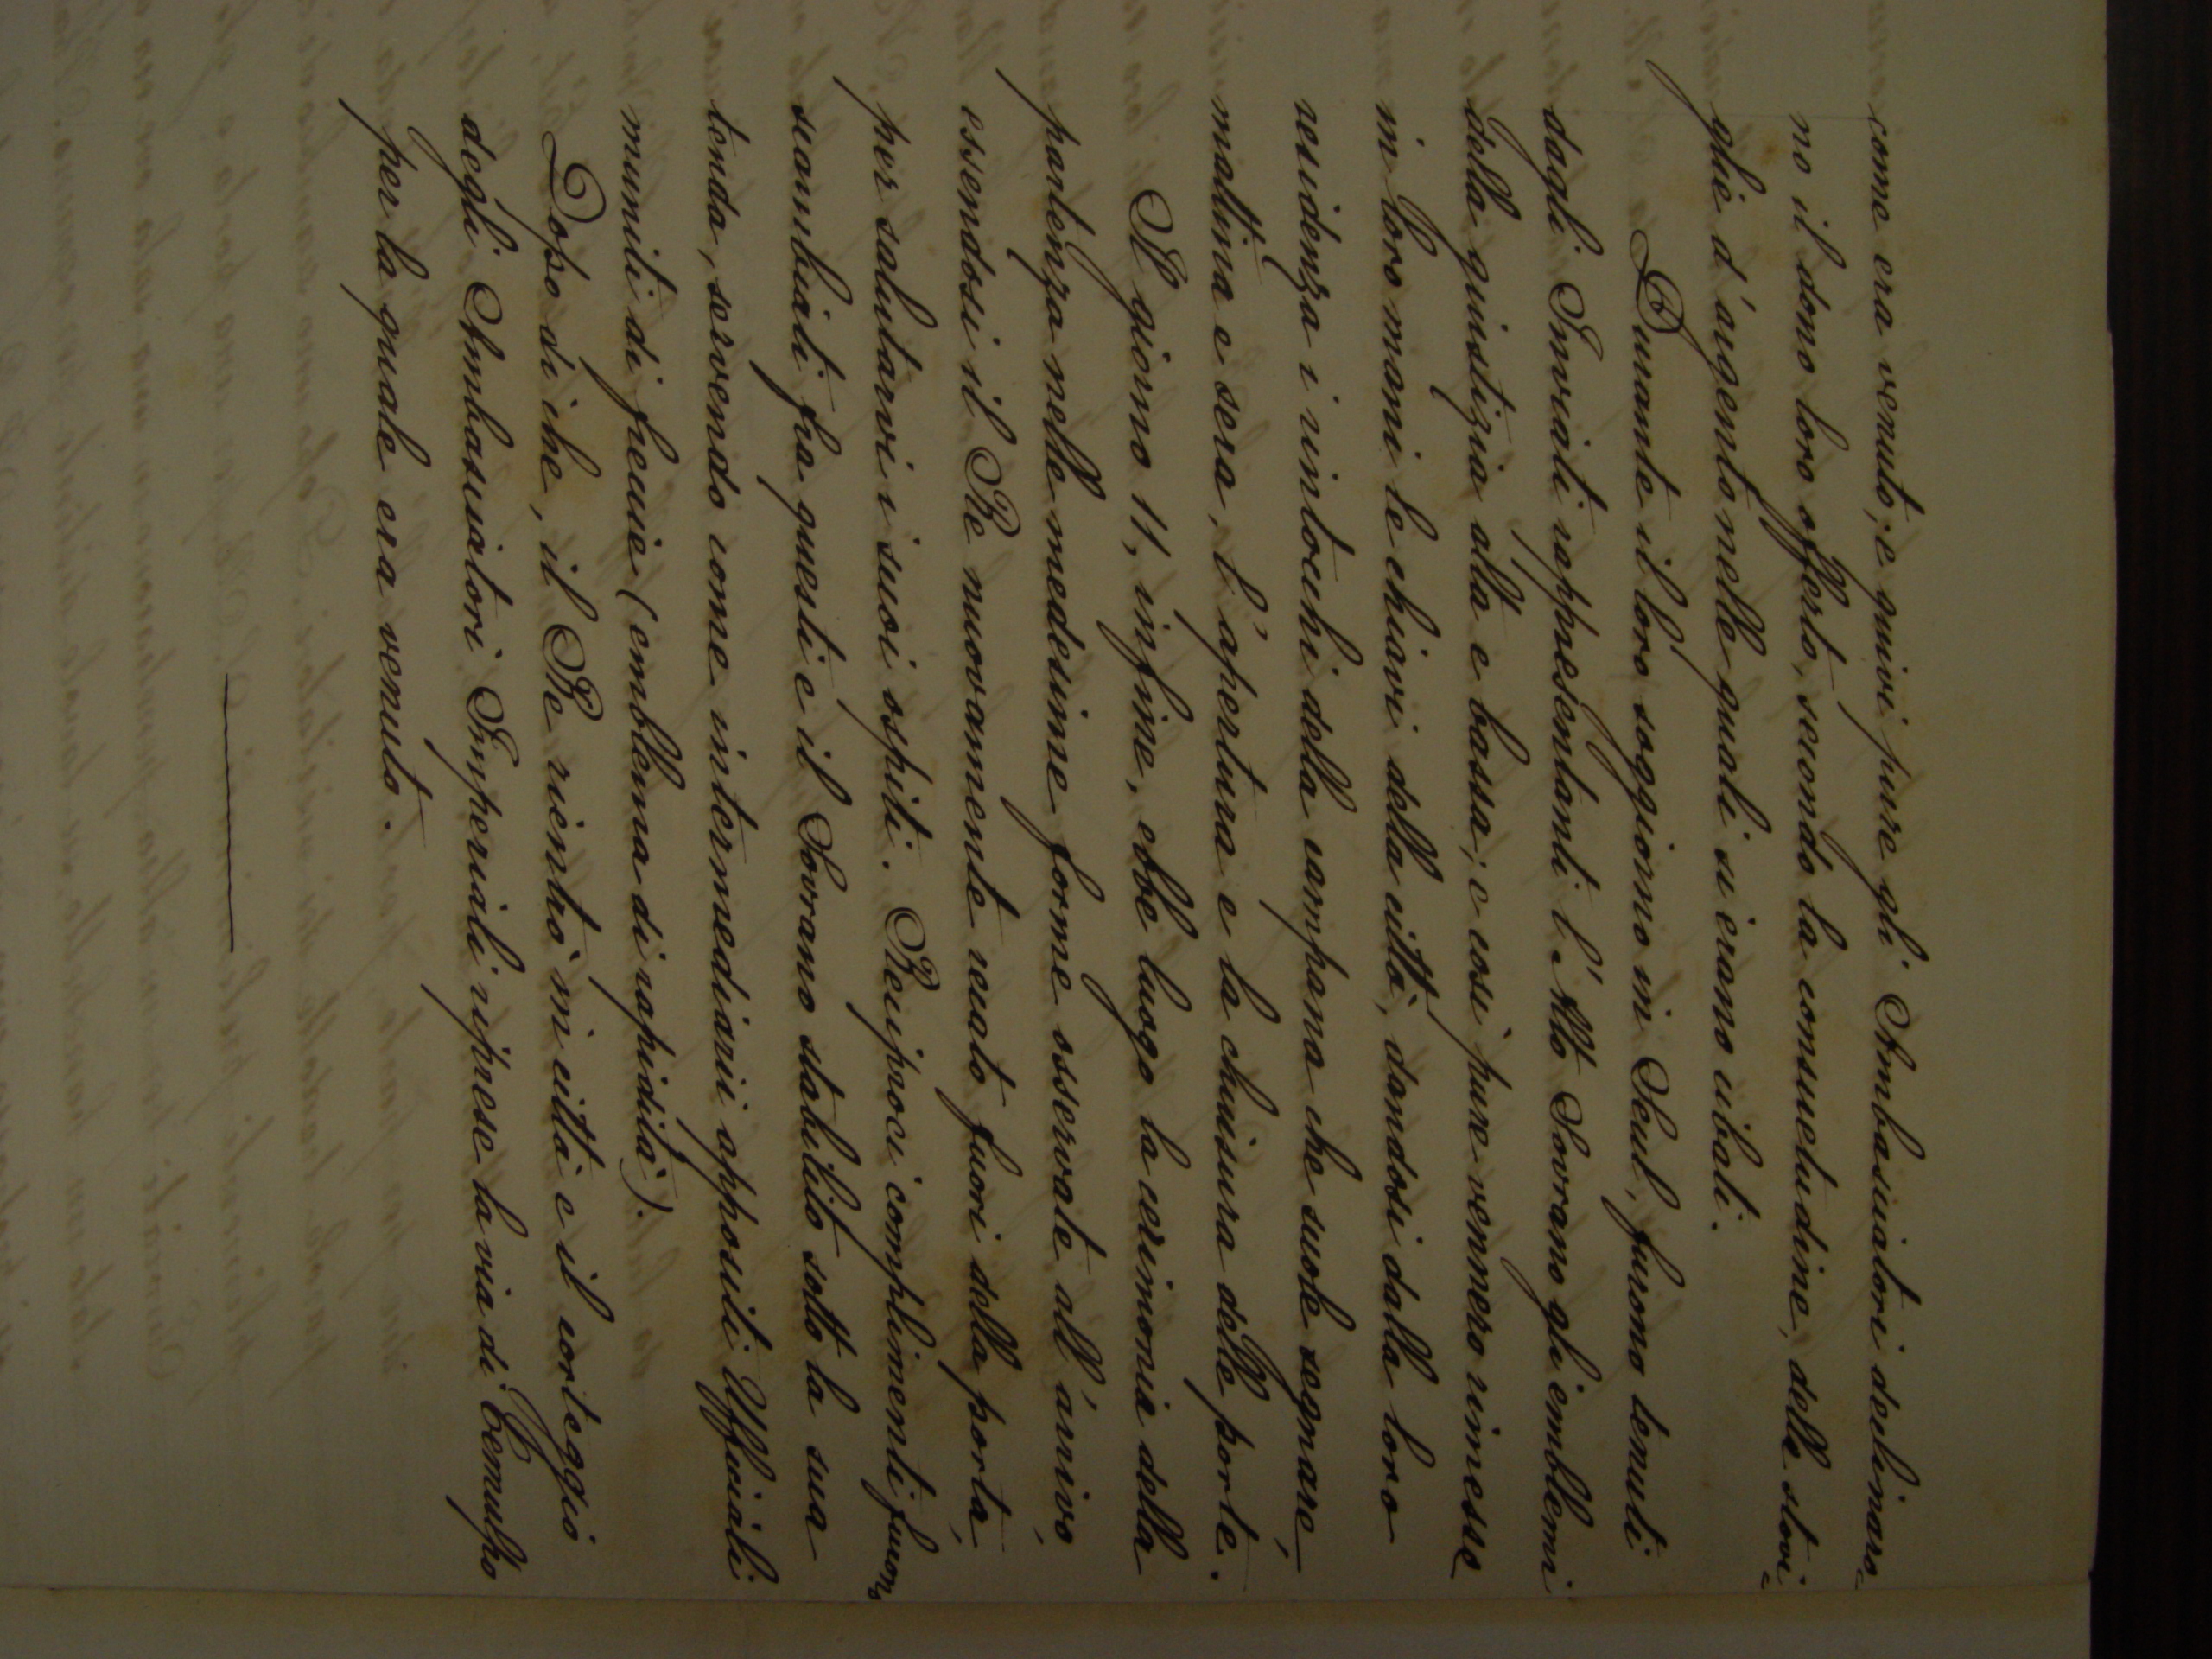 come era venuto; e quivi pure gli Ambasciatori declinaro=
no il dono loro offerto, secondo la consuetudine, delle stovi=
glie d'argento nelle quali si erano cibati.
Durante il loro soggiorno in Seul, furono tenuti
dagli Inviati rappresentanti l'Alto Sovrano gli emblemi
della giustizia alta e bassa; e così pure vennero rimesse
in loro mani le chiavi della città, dandosi dalla loro
residenza i rintocchi della campana che suole segnare,
mattina e sera, l'apertura e la chiusura delle porte.
Il giorno 11, infine, ebbe luogo la cerimonia della
partenza nelle medesime forme osservate all'arrivo,
essendosi il Re nuovamente recato fuori della porta,
per salutarvi i suoi ospiti. Reciproci complimenti furono
scambiati fra questi e il Sovrano stabilito sotto la sua
tenda, servendo come intermediarii appositi Ufficiali
muniti di freccie (emblema di rapidità).
Dopo di che, il Re rientrò in città e il corteggio
degli Ambasciatori Imperiali riprese la via di Cemulpo
per la quale era venuto.